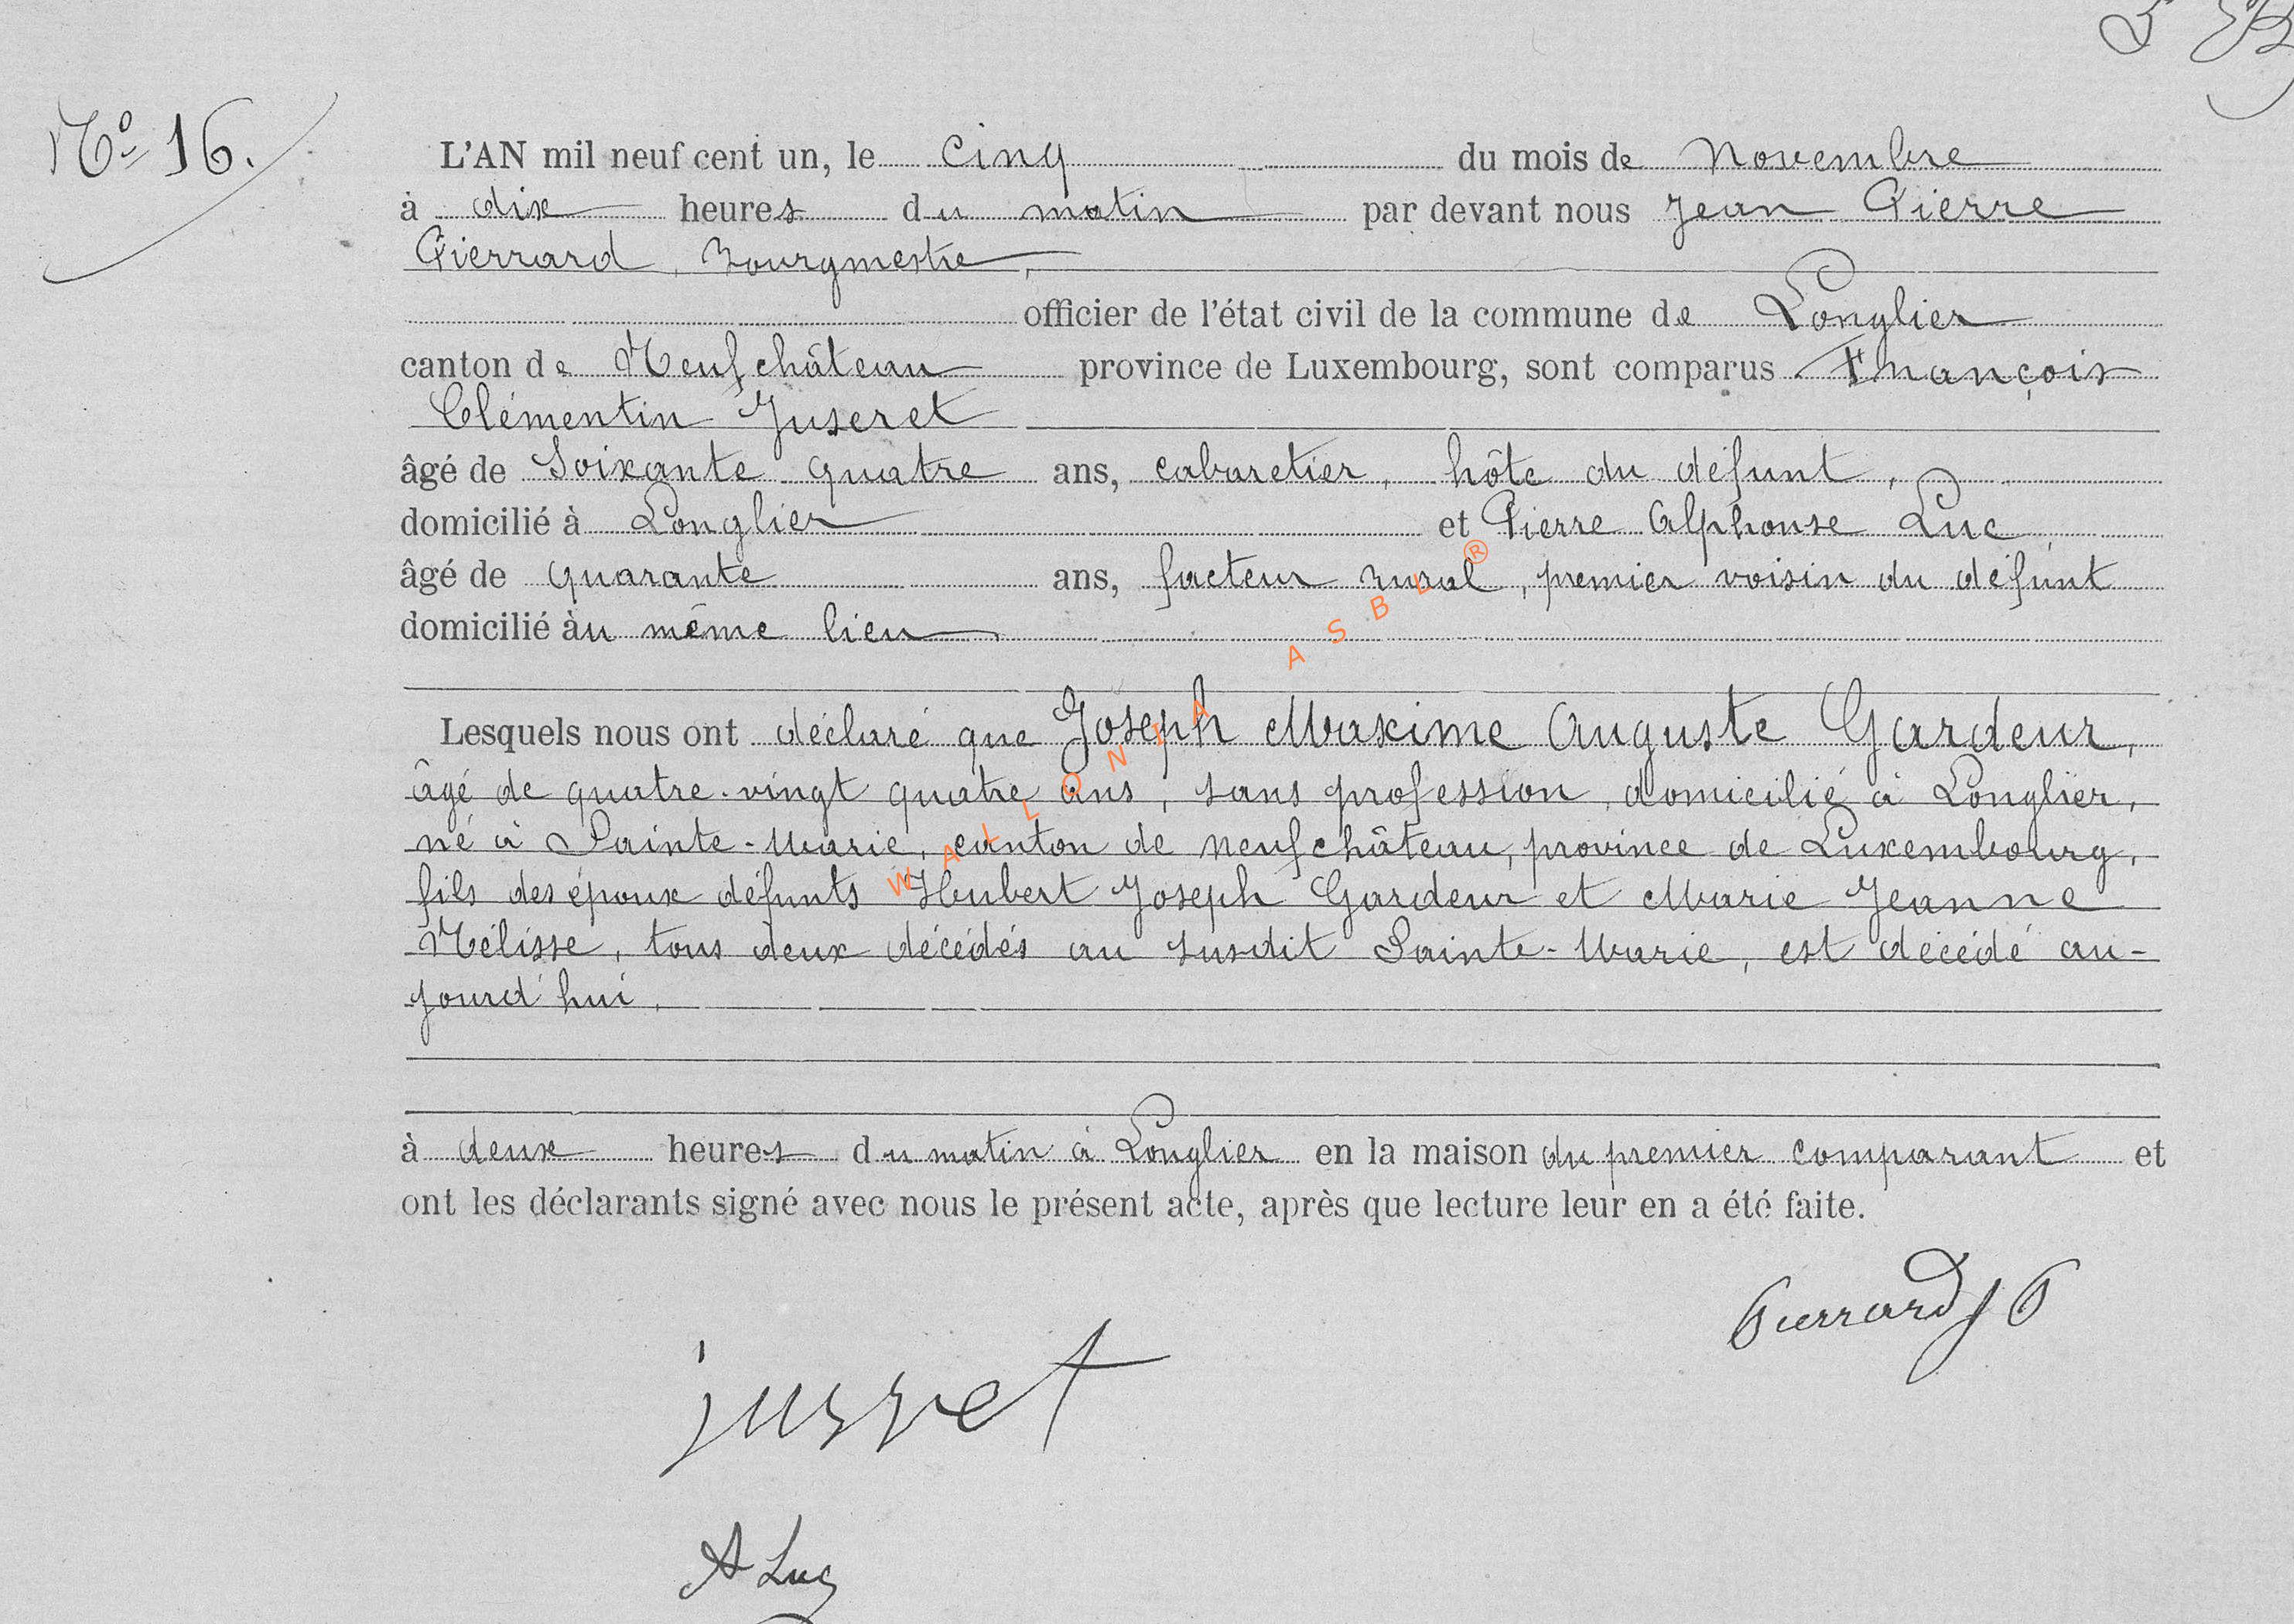 N° 16.
L'AN mil neuf cent un, le cinq du mois de Novembre
à dix heures du matin par devant nous Jean Pierre
Pierrard, Bourgmestre,
officier de l'état civil de la commune de Longlier
canton de Neufchâteau province de Luxembourg, sont comparus François
Clémentin Juseret
âgé de Soixante quatre ans, cabaretier, hôte du défunt,
domicilié à Longlier et Pierre Alphonse Luc
âgé de quarante ans, facteur rural, premier voisin du défunt
domicilié au même lieu
Lesquels nous ont déclaré que Joseph Maxime Auguste Gardeur,
âgé de quatre-vingt quatre ans, sans profession, domicilié à Longlier,
né à Sainte-Marie, canton de Neufchâteau, province de Luxembourg,
fils des époux défunts Hubert Joseph Gardeur et Marie Jeanne
Mélisse, tous deux décédés au susdit Sainte-Marie, est décédé au-
jourd'hui,
à deux heures du matin à Longlier en la maison du premier comparant et
ont les déclarants signé avec nous le présent acte, après que lecture leur en a été faite.
Pierrard J P
juseret
A Luc
WALLONIA ASBL ®